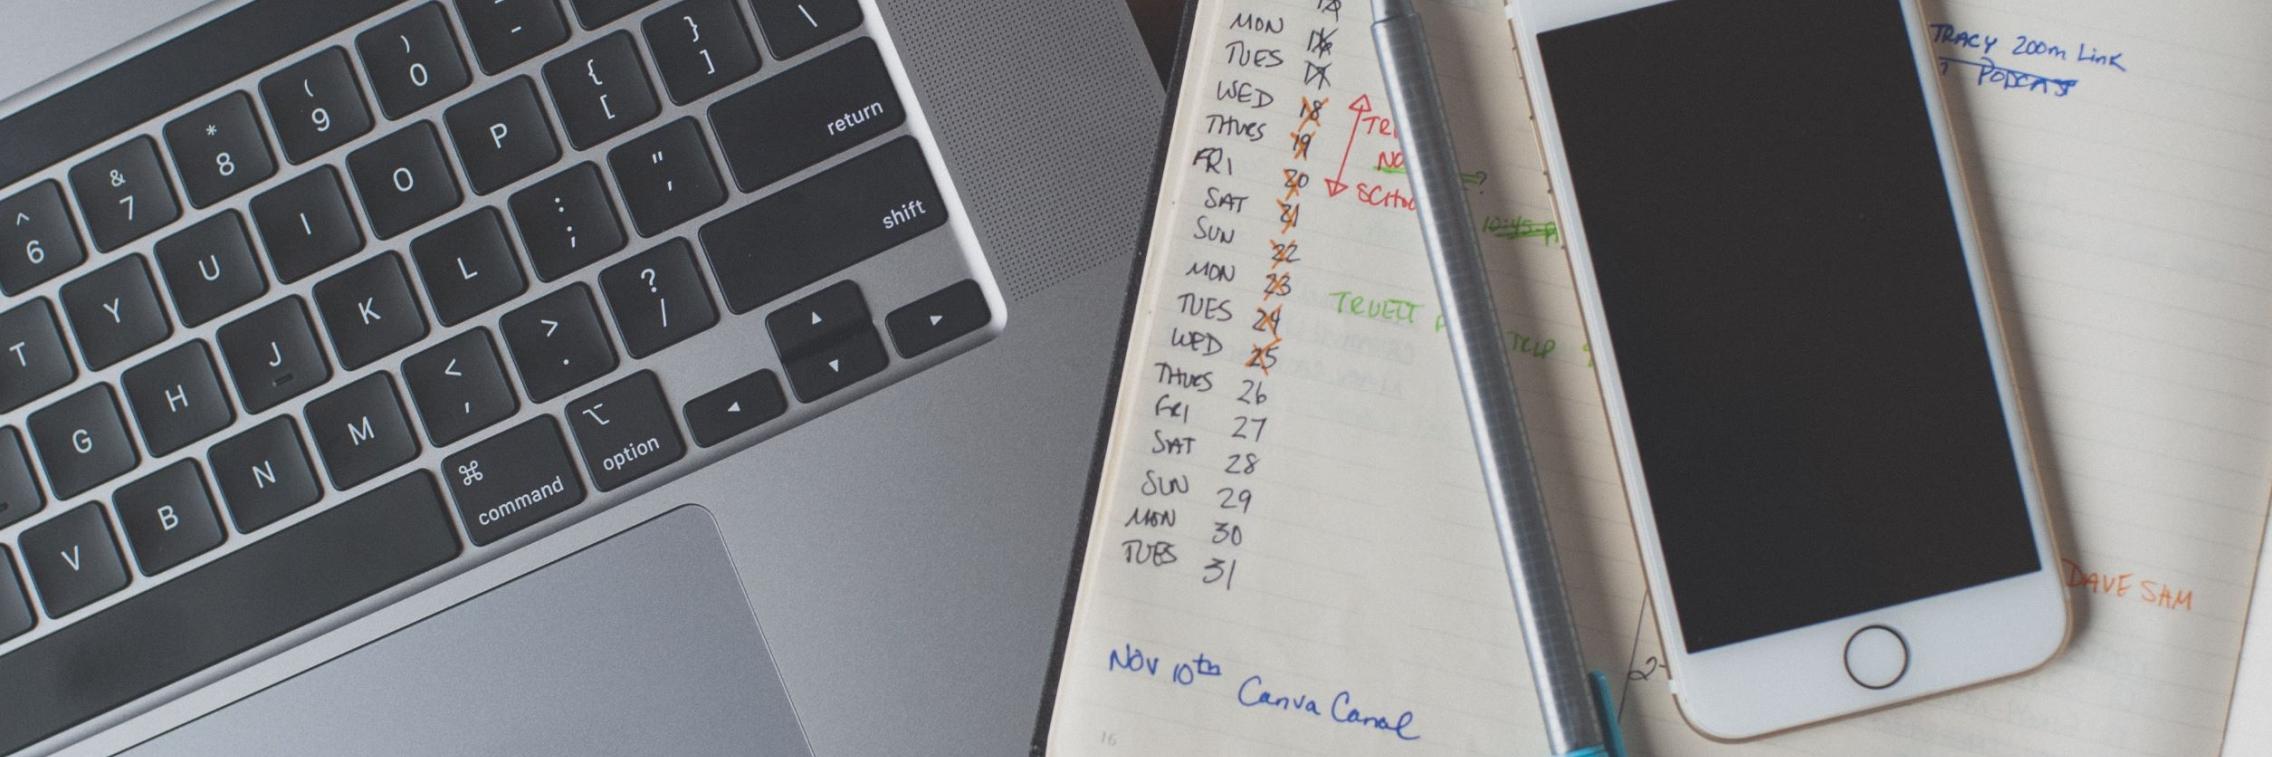 ) 0
_ -
} ]
\
^ 6
& 7
* 8
( 9
return
T
Y
U
I
O
P
{ [
" '
shift
G
H
J
K
L
: ;
? /
V
B
N
M
< ,
> .
⌘ command
⌥ option
▲
▼
◄
►
MON
TUES
WED 18
THURS 19
FRI 20
SAT 21
SUN 22
MON 23
TUES 24
WED 25
THURS 26
FRI 27
SAT 28
SUN 29
MON 30
TUES 31
NO
?
TRUETT
TRIP
NOV 10th
16
TRACY ZOOM Link
? PODCAST
DAVE SAM
2